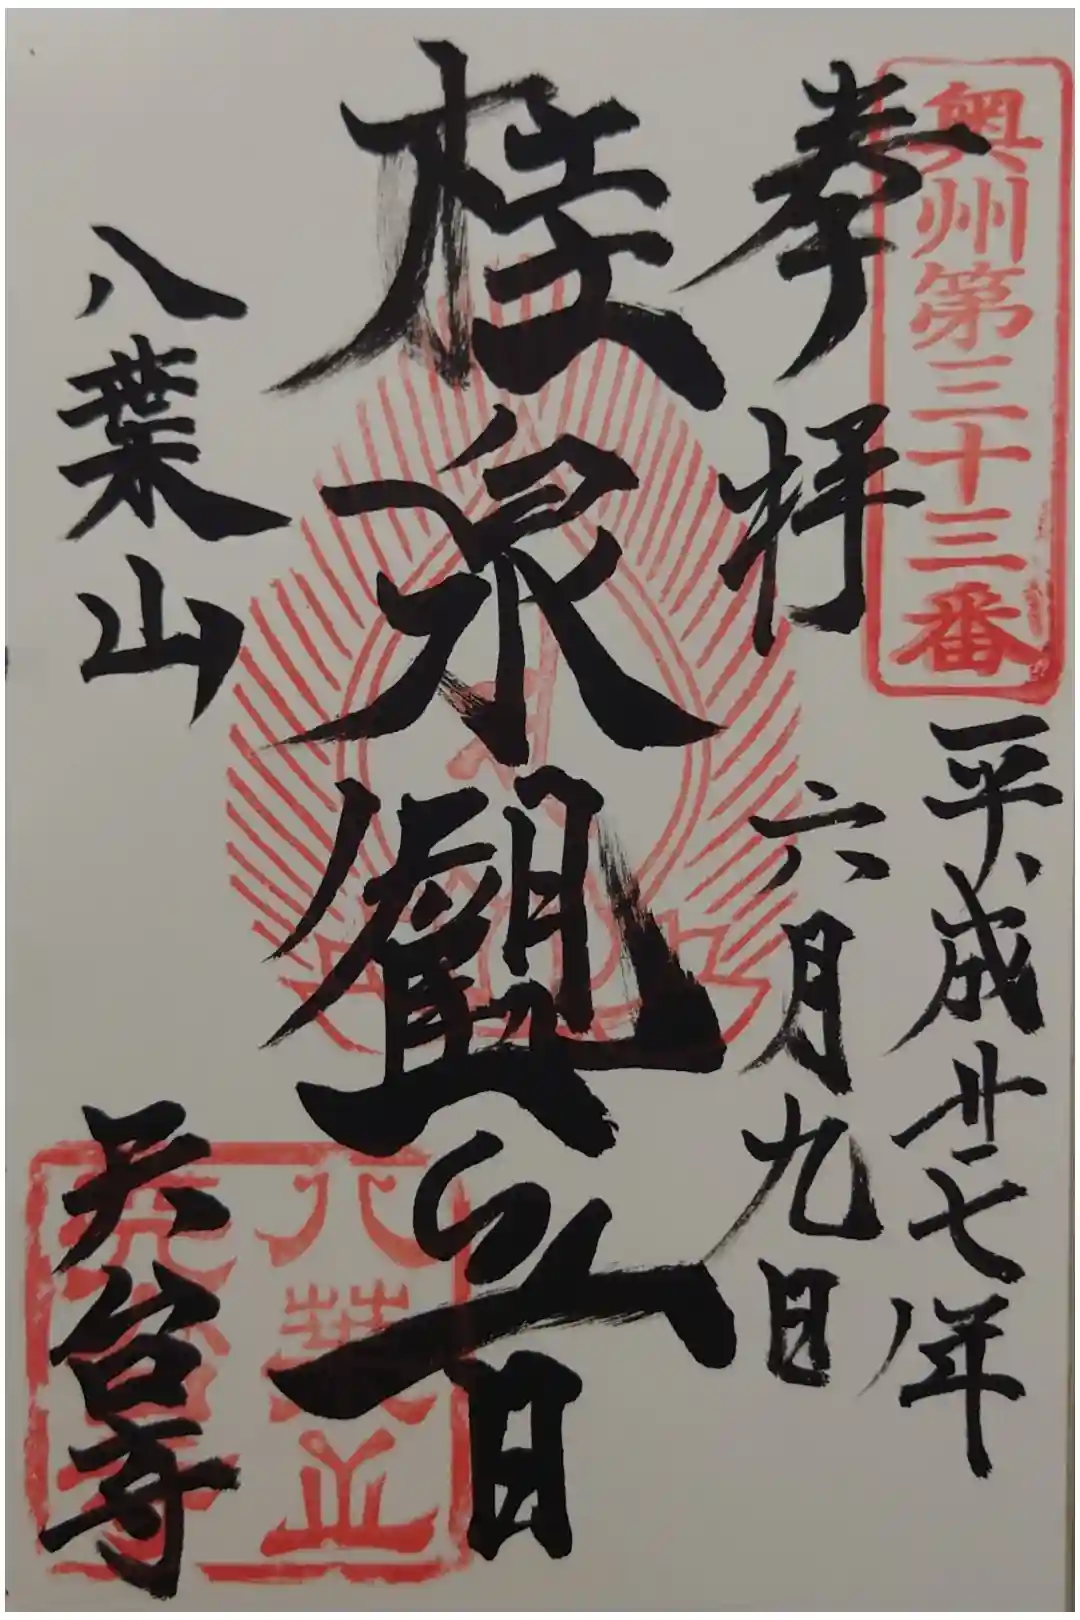 奥州第三十三番
平成廿七年
奉拝
六月九日
桂泉観音
八葉山
天台寺
八葉山
天台寺